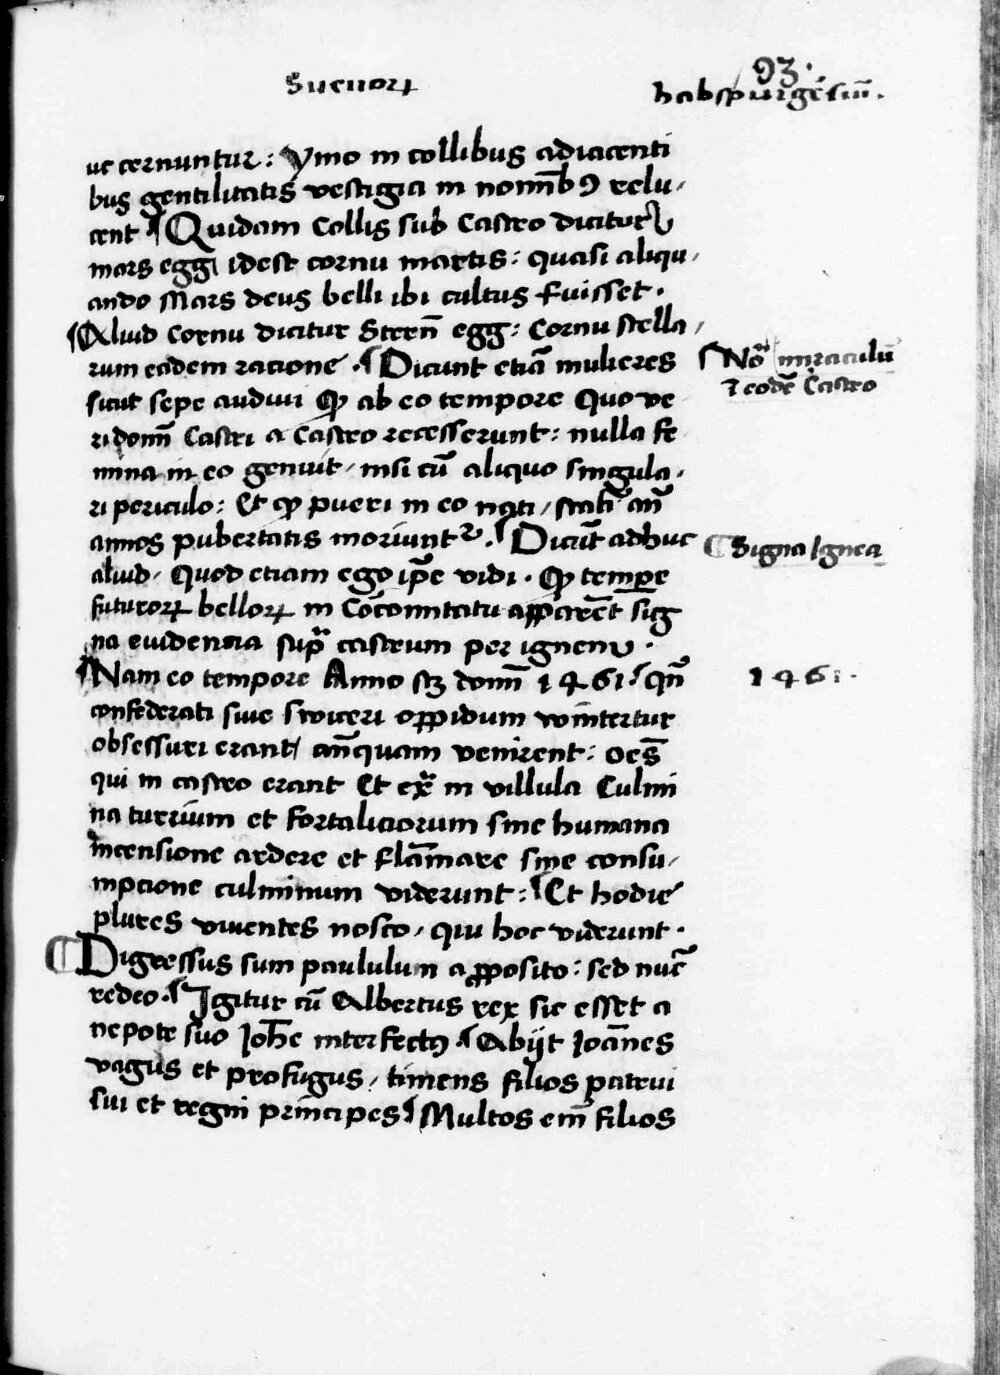 93.
Sueuoꝝ
habspurgēsiū.
ue cernuntur: Ymo in collibus adiacenti
bus gentilitatis vestigia in nomībꝰ relu-
cent ¶ Quidam Collis sub Castro dicitur
mars egg idest cornu martis: quasi aliqu-
ando Mars deus belli ibi cultus fuisset.
¶ Aliud Cornu dicitur Stern̄ egg: Cornu stella-
rum eadem racione. ¶ Dicunt etiā mulieres
sicut sepe audiui ꝙ ab eo tempore Quo ve
ri domī Castri a Castro recesserunt: nulla fe
mina in eo genuit, nisi cū aliquo singula-
ri periculo: Et ꝙ pueri in eo nati, statī an̄
annos pubertatis moriuntᷣ. ¶ Dicūt adhuc
aliud. Quod etiam ego ip̄e vidi. ꝙ tempe
futuroꝝ belloꝝ in Cōcomitatu apparēt sig
na euidencia supᷓ castrum per ignem.
¶ Nam eo tempore Anno sꝫ domī 1461. qn̄
confederati siue switceri oppidum wintertur
obsessuri erant, an̄quam venirent: oēs
qui in castro erant Et exᷓ in villula Culmi
na turrium et fortaliciorum sine humana
incensione ardere et flam̄are sine consu-
mpcione culminum viderunt: ¶ Et hodie
plures viuentes nosco, qui hoc viderunt.
¶ Digressus sum paululum a ꝓposito: sed nūc
redeo. ¶ Igitur cū Albertus rex sic esset a
nepote suo Joh̄e interfectꝰ. ¶ Abijt Joān̄es
vagus et profugus, timens filios patrui
sui et regni principes ¶ Multos em̄ filios
¶ Noᷓ miraculū
ī eodē Castro
¶ Signa Ignea
1461.